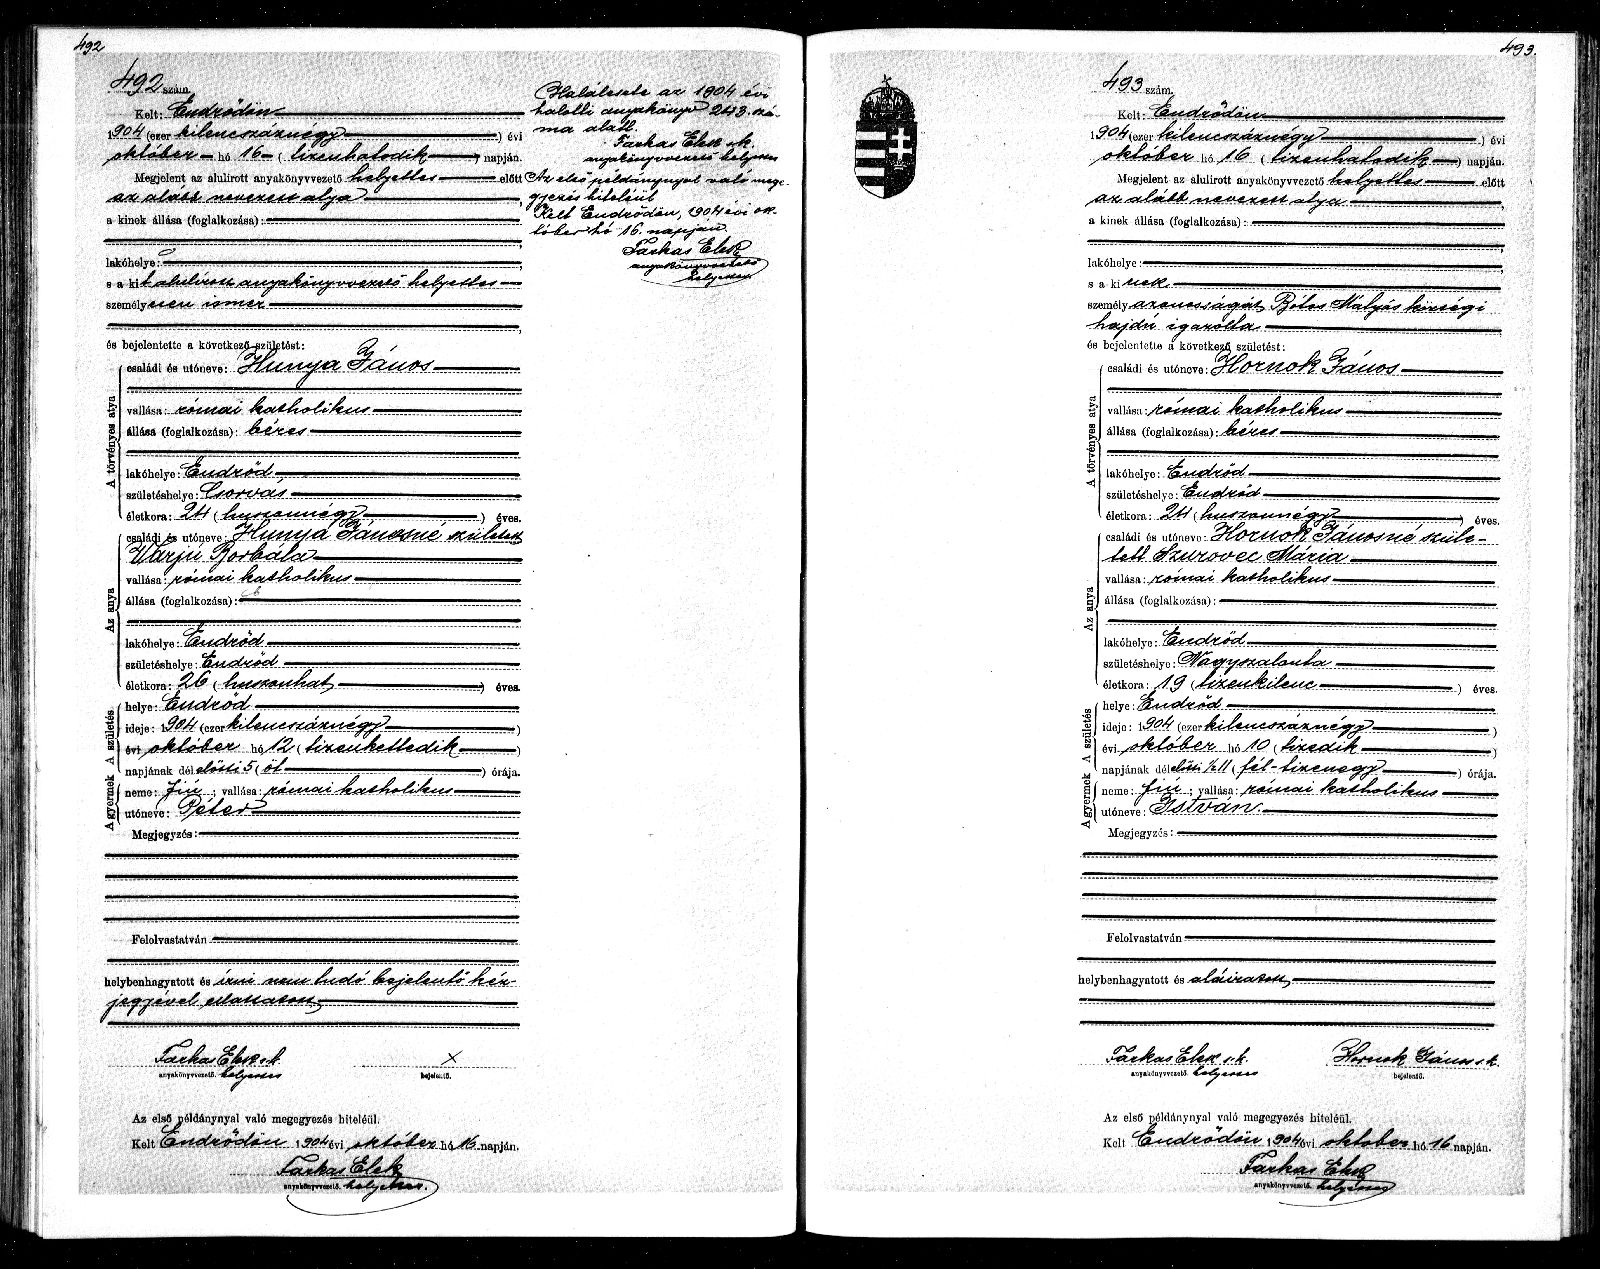 492
492 szám.
Kelt: Endrődön
1904 (ezer kilencszáznégy) évi
október hó 16 (tizenhatodik) napján.
Megjelent az alulirott anyakönyvvezető helyettes előtt
az alább nevezett atya,
a kinek állása (foglalkozása):
lakóhelye:
s a kit alulírott anyakönyvvezető helyettes
személyesen ismer
és bejelentette a következő születést:
A törvényes atya
családi és utóneve: Hunya János
vallása: római katholikus
állása (foglalkozása): béres
lakóhelye: Endrőd
születéshelye: Csorvás
életkora: 24 (huszonnégy) éves.
Az anya
családi és utóneve: Hunya Jánosné született
Varjú Borbála
vallása: római katholikus
állása (foglalkozása):
lakóhelye: Endrőd
születéshelye: Endrőd
életkora: 26 (huszonhat) éves.
A születés
helye: Endrőd
ideje: 1904 (ezer kilencszáznégy)
évi október hó 12 (tizenkettedik)
napjának délelőtti 5 (öt) órája.
A gyermek
neme: fiú; vallása: római katholikus
utóneve: Péter
Megjegyzés:
Felolvastatván
helybenhagyatott és írni nem tudó bejelentő kéz-
jegyével ellátatott
Farkas Elek s.k. x
anyakönyvvezető helyettes bejelentő.
Az első példánynyal való megegyezés hiteléül.
Kelt Endrődön 1904 évi október hó 16 napján.
Farkas Elek
anyakönyvvezető. helyettes.
Halálesete az 1904 évi
halotti anyakönyv 243. szá-
ma alatt.
Farkas Elek s.k.
anyakönyvvezető helyettes
Az első példánynyal való mege-
gyezés hiteléül
Kelt Endrődön, 1904 évi ok-
tóber hó 16. napján.
Farkas Elek
anyakönyvvezető
helyettes.
493.
493 szám.
Kelt: Endrődön
1904 (ezer kilencszáznégy) évi
október hó 16 (tizenhatodik) napján.
Megjelent az alulirott anyakönyvvezető helyettes előtt
az alább nevezett atya,
a kinek állása (foglalkozása):
lakóhelye:
s a kinek
személyazonosságát Bótos Mátyás községi
hajdú igazolta
és bejelentette a következő születést:
A törvényes atya
családi és utóneve: Hornok János
vallása: római katholikus
állása (foglalkozása): béres
lakóhelye: Endrőd
születéshelye: Endrőd
életkora: 24 (huszonnégy) éves.
Az anya
családi és utóneve: Hornok Jánosné szüle-
tett Szurovec Mária
vallása: római katholikus
állása (foglalkozása):
lakóhelye: Endrőd
születéshelye: Nagyszalonta
életkora: 19 (tizenkilenc) éves.
A születés
helye: Endrőd
ideje: 1904 (ezer kilencszáznégy)
évi október hó 10 (tizedik)
napjának délelőtti ½11 (fél-tizenegy) órája.
A gyermek
neme: fiú; vallása: római katholikus
utóneve: István.
Megjegyzés:
Felolvastatván
helybenhagyatott és aláíratott
Farkas Elek s.k. Hornok János s.k.
anyakönyvvezető. helyettes bejelentő.
Az első példánynyal való megegyezés hiteléül.
Kelt Endrődön 1904 évi október hó 16 napján.
Farkas Elek
anyakönyvvezető. helyettes